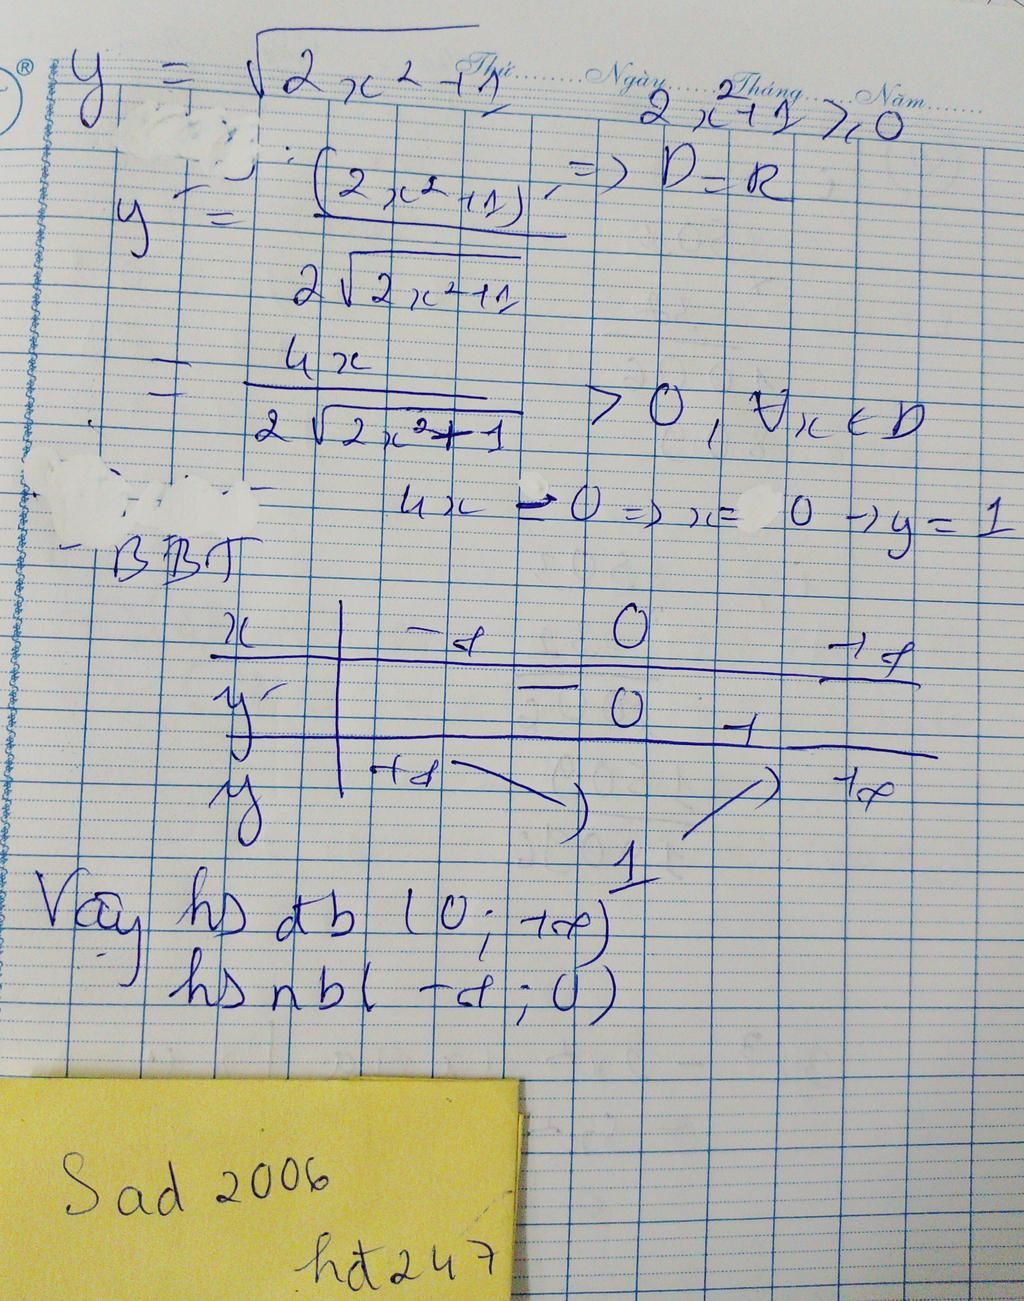 ®
Thứ........Ngày........Tháng........Năm........
y = √2x²+1
2x²+1 ≥ 0
y' = (2x²+1)' => D = R
2√2x²+1
= 4x
2√2x²+1 > 0, ∀x ∈ D
4x = 0 => x = 0 → y = 1
- BBT
x -∞ 0 +∞
y' - 0 +
y +∞ 1 +∞
Vậy hs đb (0; +∞)
hs nb (-∞; 0)
Sad 2006
hđ247